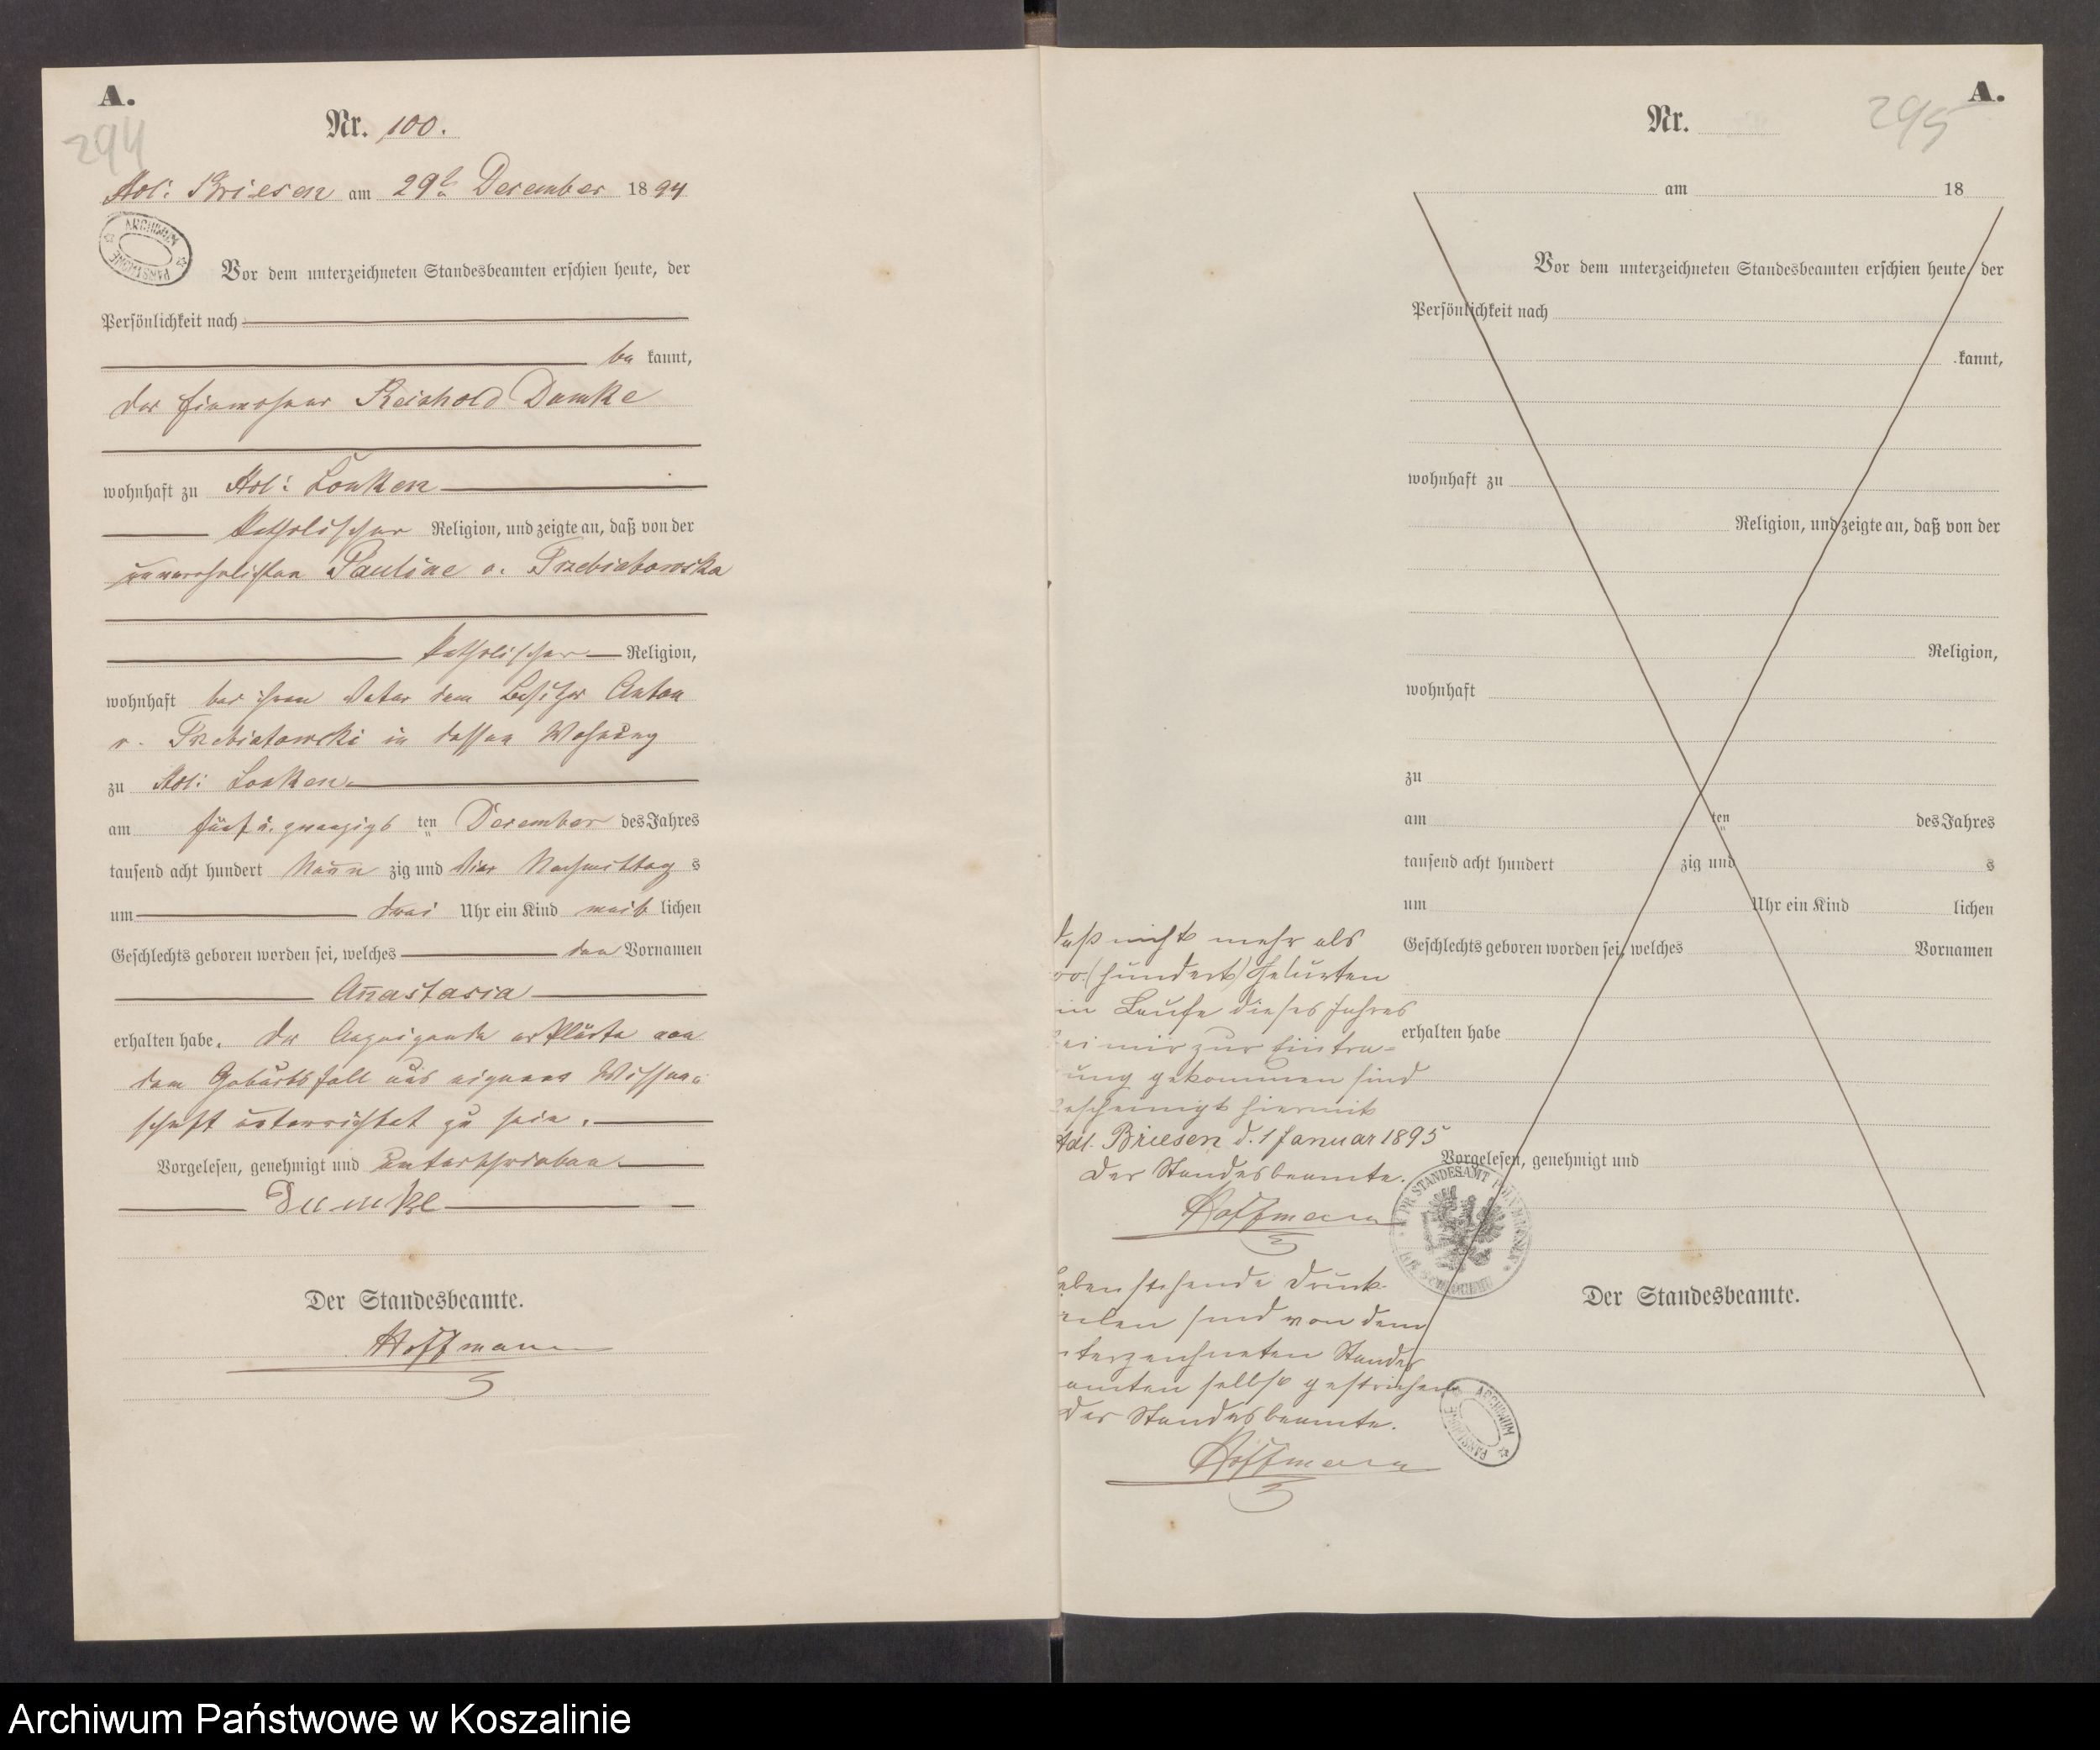 A.
294
Nr. 100.
Adl: Briesen am 29t Dezember 1894
ARCHIWUM PAŃSTWOWE
Vor dem unterzeichneten Standesbeamten erschien heute, der
Persönlichkeit nach
be kannt,
der Einwohner Reinhold Damke
wohnhaft zu Adl: Lonken
katholischer Religion, und zeigte an, daß von der
unverehelichten Pauline v. Trzebiatowska
katholischer Religion,
wohnhaft bei ihrem Vater dem Besitzer Anton
v. Trzebiatowski in dessen Wohnung
zu Adl: Lonken
am fünf u. zwanzigs ten Dezember des Jahres
tausend acht hundert Neun zig und Vier Nachmittag s
um drei Uhr ein Kind weib lichen
Geschlechts geboren worden sei, welches den Vornamen
Anastasia
erhalten habe. Der Anzeigende erklärte von
dem Geburtsfall aus eigener Wissen-
schaft unterrichtet zu sein.
Vorgelesen, genehmigt und unterschrieben
Damke
Der Standesbeamte.
Hoffmann
A.
295
Nr.
am 18
Vor dem unterzeichneten Standesbeamten erschien heute, der
Persönlichkeit nach
kannt,
wohnhaft zu
Religion, und zeigte an, daß von der
Religion,
wohnhaft
zu
am ten des Jahres
tausend acht hundert zig und s
um Uhr ein Kind lichen
Geschlechts geboren worden sei, welches Vornamen
erhalten habe
Vorgelesen, genehmigt und
Der Standesbeamte.
daß nicht mehr als
00 (hundert) Geburten
im Laufe dieses Jahres
bei mir zur Eintra-
gung gekommen sind
bescheinigt hiermit
Adl. Briesen d. 1 Januar 1895
Der Standesbeamte.
Hoffmann
PR. STANDESAMT
Nebenstehende Druck-
zeilen sind von dem
nterzeichneten Standes
amten selbst gestrichen
Der Standesbeamte.
Hoffmann
ARCHIWUM PAŃSTWOWE
Archiwum Państwowe w Koszalinie